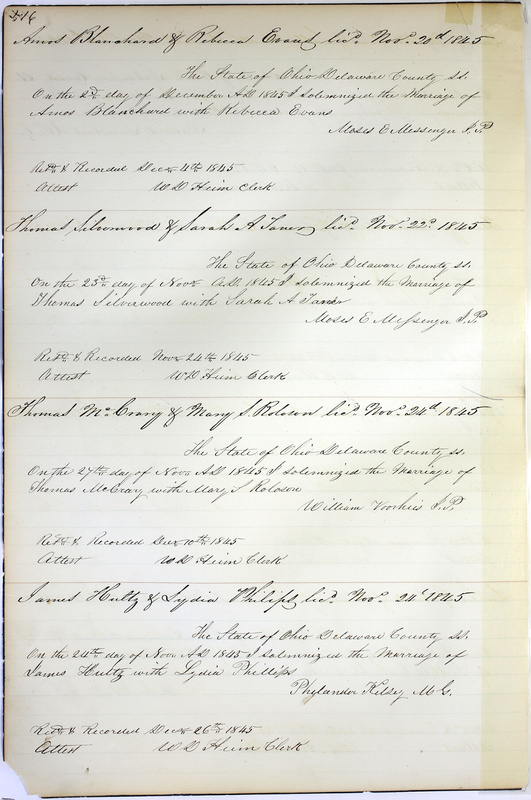 516
Amos Blanchard & Rebecca Evans lic.d Nov.r 20d 1845
The State of Ohio Delaware County ss.
On the 2d day of December AD 1845 I solemnized the Marriage of
Amos Blanchard with Rebecca Evans
Moses E Messenger J.P.
Ret.d & Recorded Dec 4th 1845
Attest W D Heim Clerk
Thomas Silverwood & Sarah A Taner lic.d Nov.r 22d 1845
The State of Ohio Delaware County ss.
On the 23d day of Nov. AD. 1845 I solemnized the Marriage of
Thomas Silverwood with Sarah A Taner
Moses E Messenger J.P.
Ret.d & Recorded Nov 24th 1845
Attest W D Heim Clerk
Thomas McCrary & Mary S. Roloson lic.d Nov.r 24d 1845
The State of Ohio Delaware County ss.
On the 27th day of Nov. AD 1845 I solemnized the Marriage of
Thomas McCrary with Mary S Roloson
William Voorhies J.P.
Ret.d & Recorded Dec 10th 1845
Attest W D Heim Clerk
James Hultz & Lydia Philips lic.d Nov.r 24' 1845
The State of Ohio Delaware County ss.
On the 24th day of Nov. AD 1845 I solemnized the Marriage of
James Hultz with Lydia Phillips
Phylander Kelsey M G.
Ret.d & Recorded Dec 26th 1845
Attest W D Heim Clerk